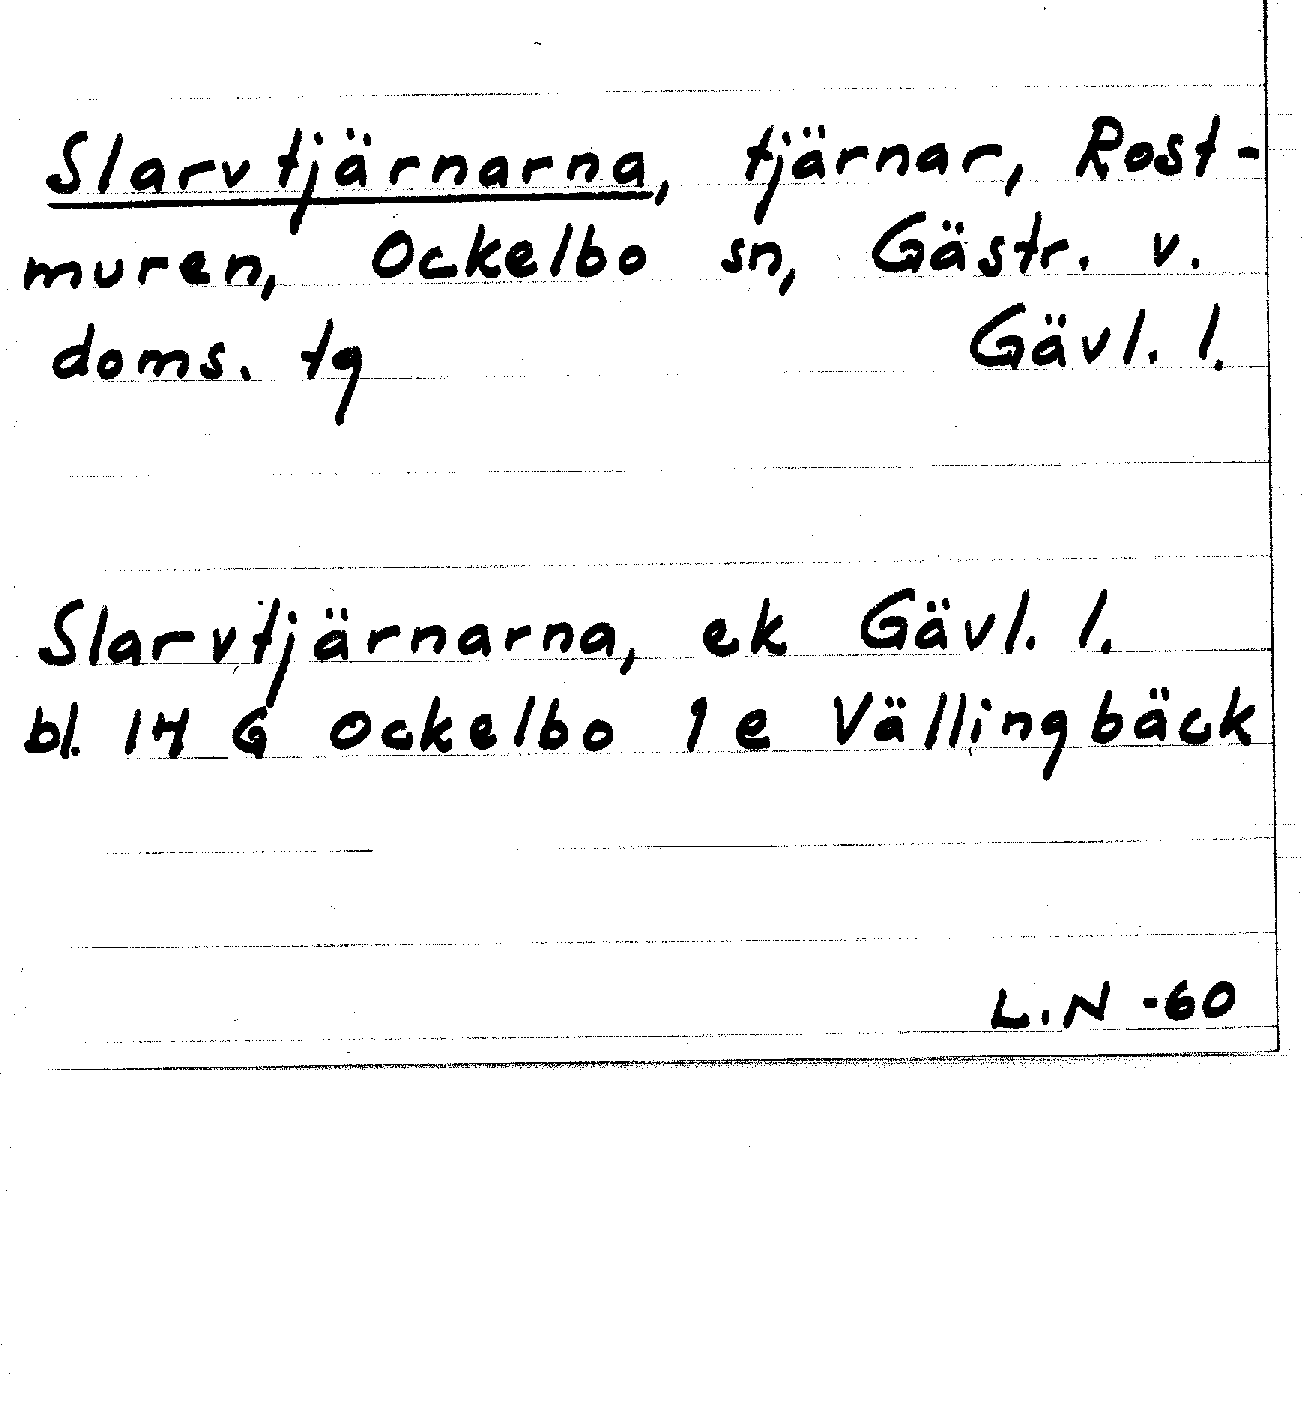 Slarvtjärnarna, tjärnar, Rost-
muren, Ockelbo sn, Gästr. v.
doms. tg Gävl. l.
Slarvtjärnarna, ek Gävl. l.
bl. 14 G Ockelbo 1 e Vällingbäck
L.N -60